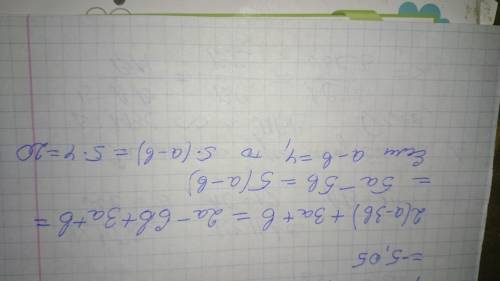 = -5,05
2(a-3b) + 3a + b = 2a - 6b + 3a + b =
= 5a - 5b = 5(a-b)
Если a-b = 4, то 5·(a-b) = 5·4 = 20